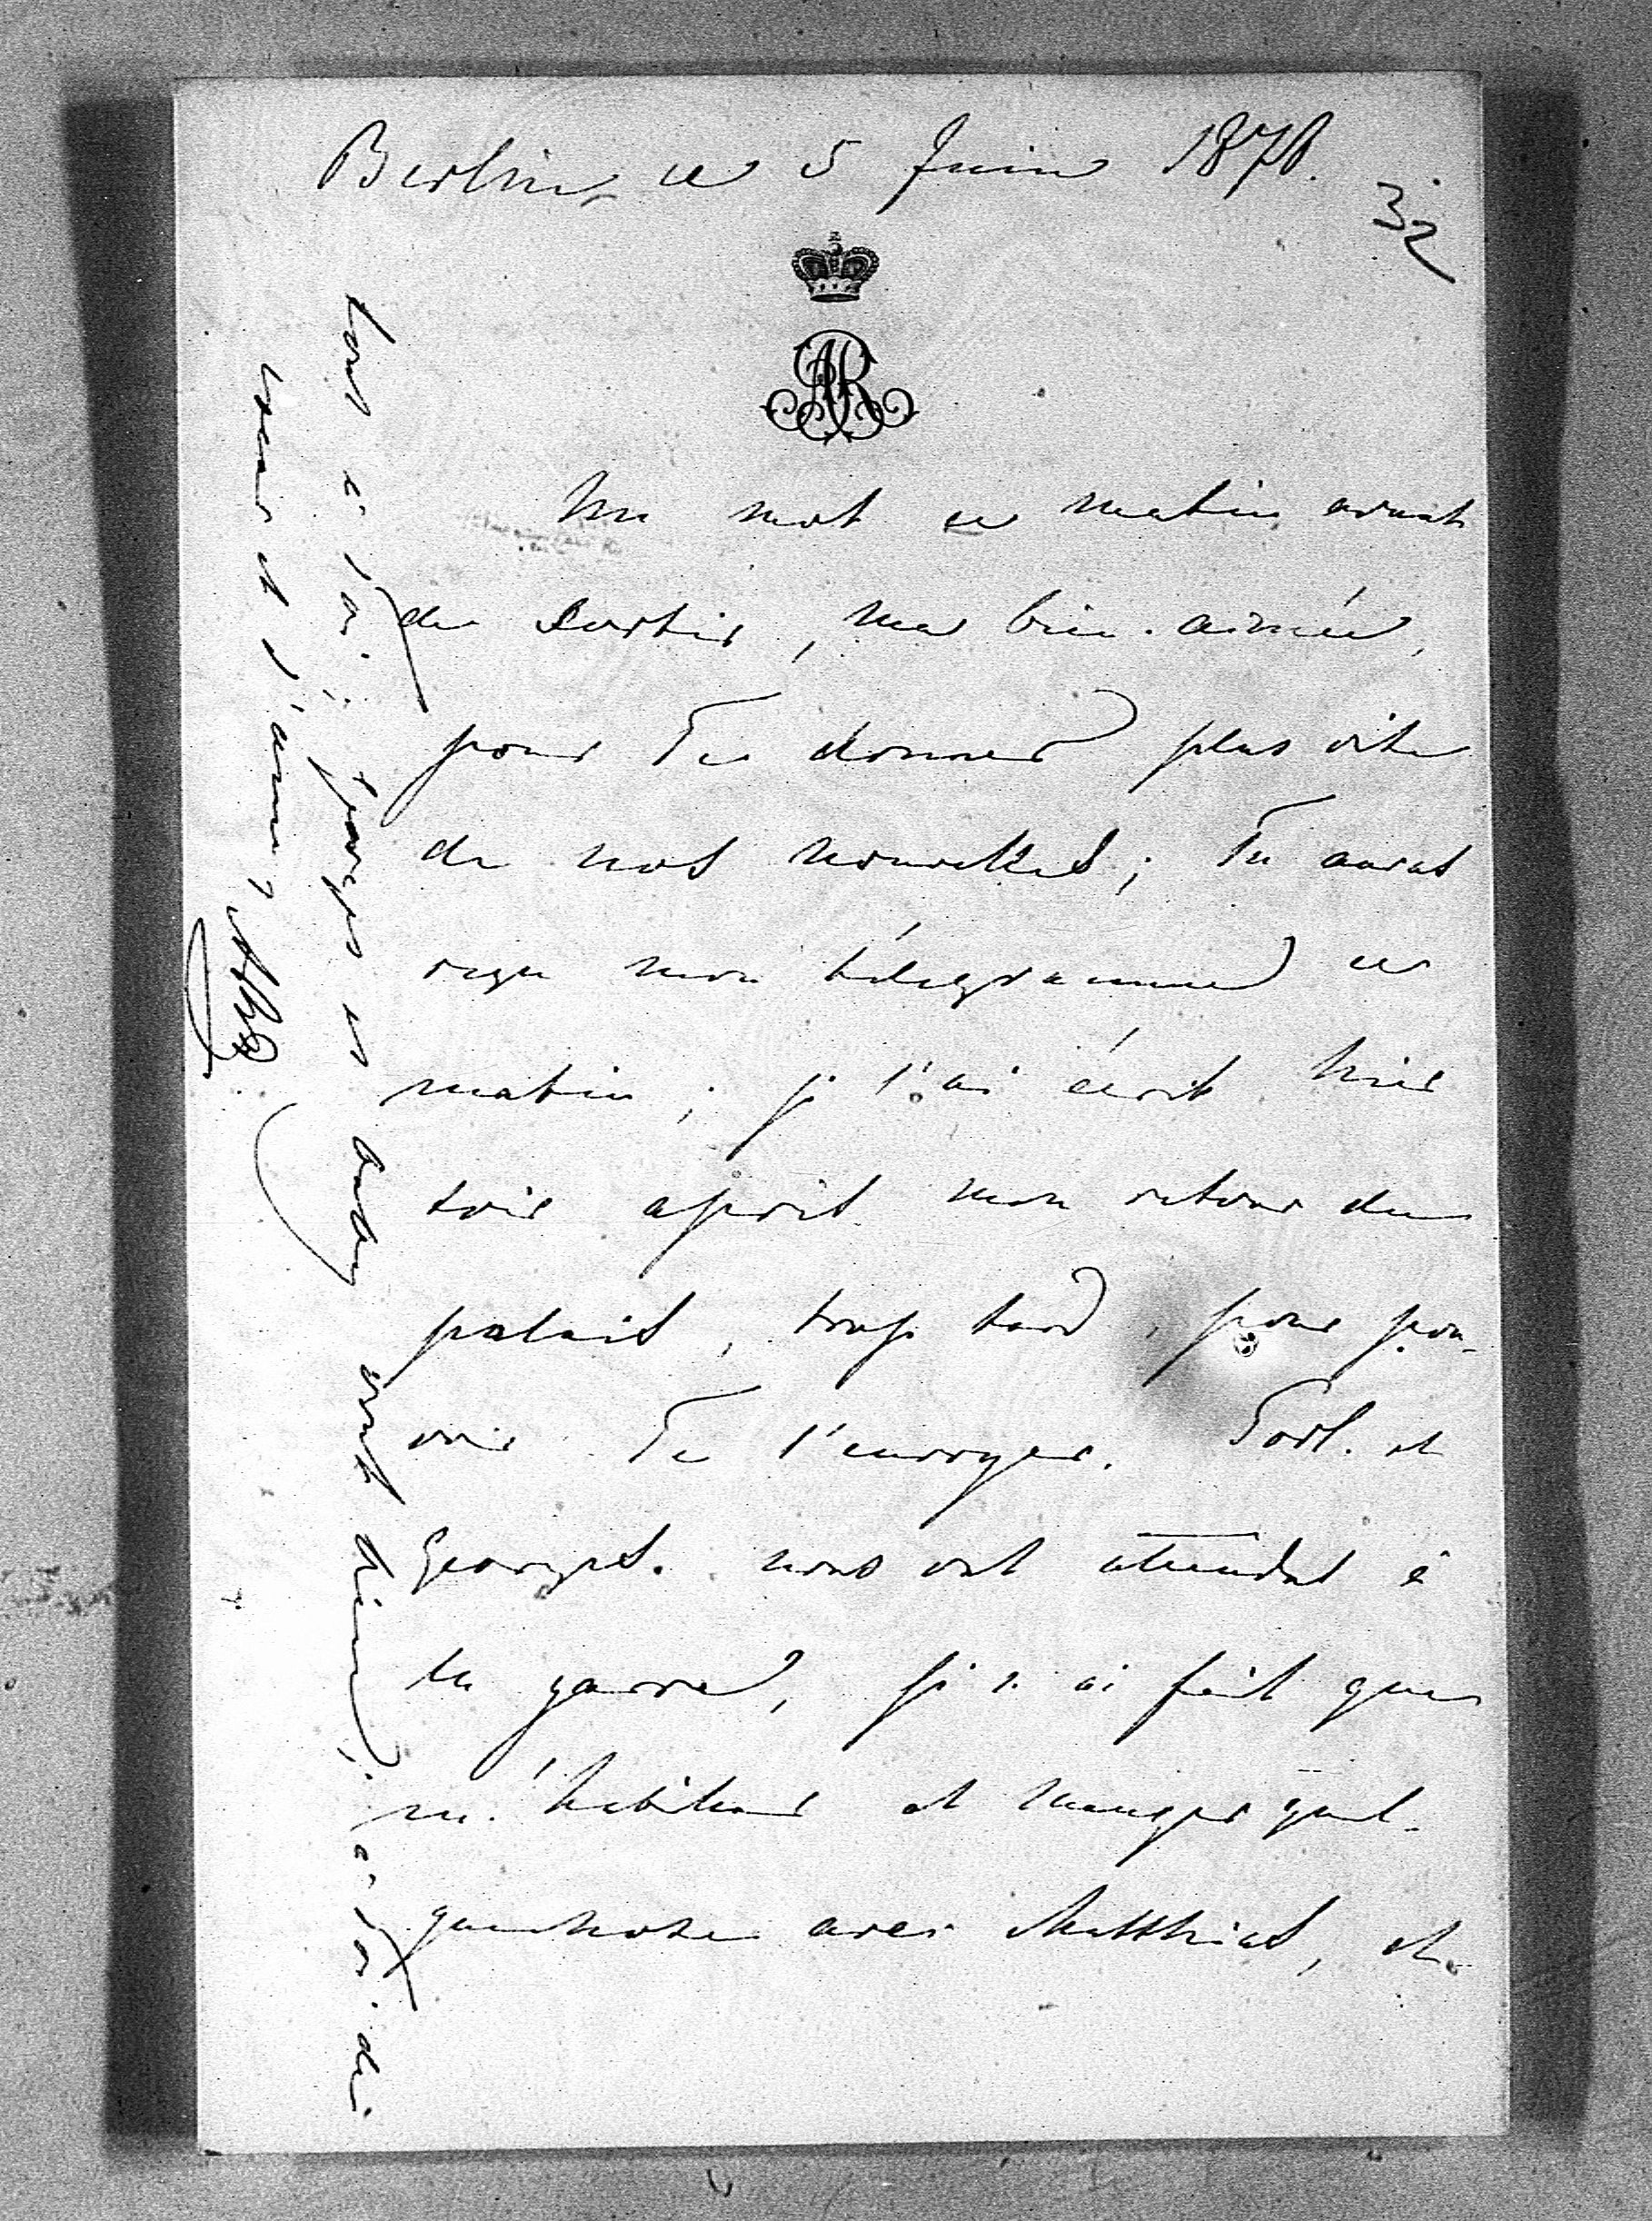 Berlin, ce 5 Juin 1878.
32
AR
Un mot ce matin avant
de sortir, ma bien-aimée,
pour Te donner plus vite
de nos nouvelles; Tu auras
reçu mon télégramme ce
matin; je l'ai écrit hier
soir après mon retour du
palais, trop tard, pour pou-
voir Te l'envoyer. et
Georges. nous ont attendus à
la garre, je n'ai fait que
m'habiller et manger quel-
quechose avec Matthias, et
tout à Toi; Georges et ont dîné à
coeur et d'âme,